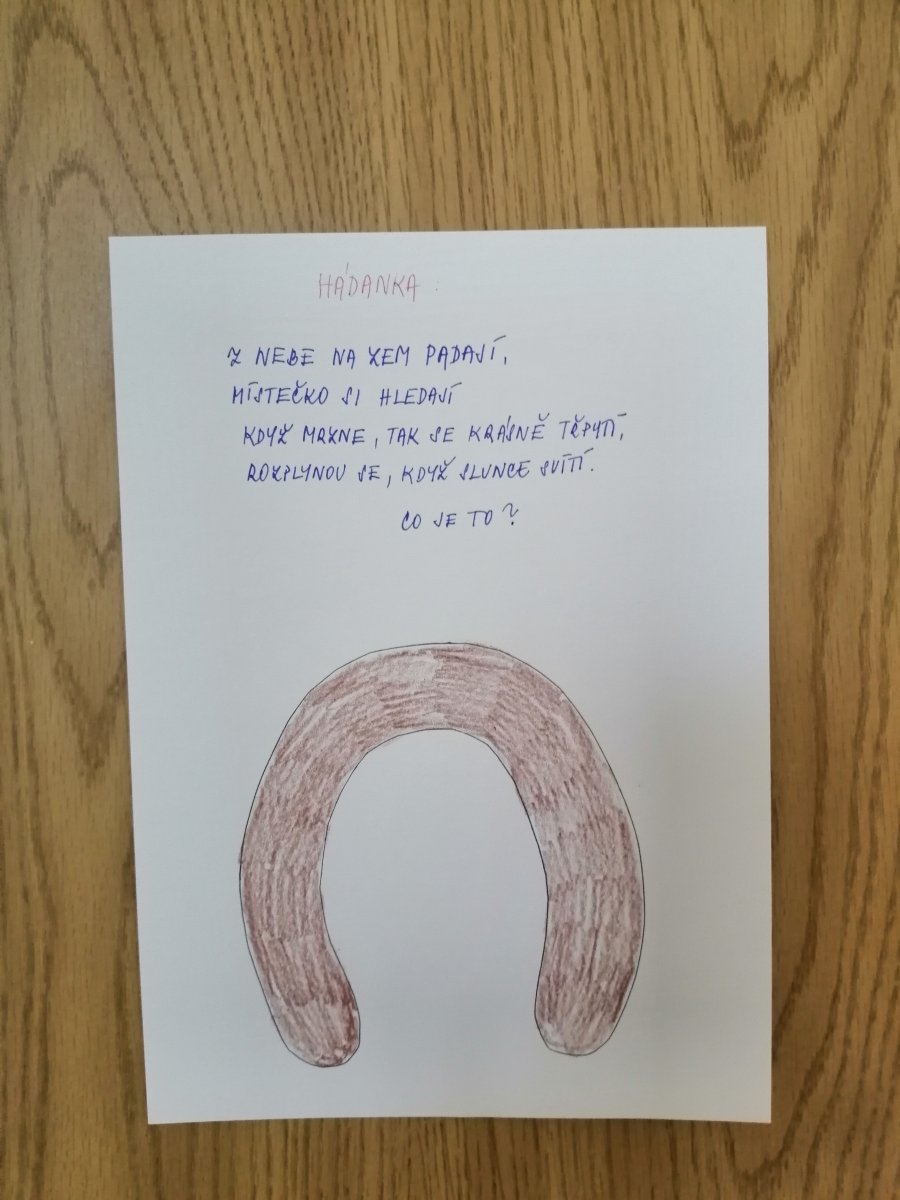 HÁDANKA:
Z NEBE NA ZEM PADAJÍ,
MÍSTEČKO SI HLEDAJÍ
KDYŽ MRZNE, TAK SE KRÁSNĚ TŘPYTÍ,
ROZPLYNOU SE, KDYŽ SLUNCE SVÍTÍ.
CO JE TO?